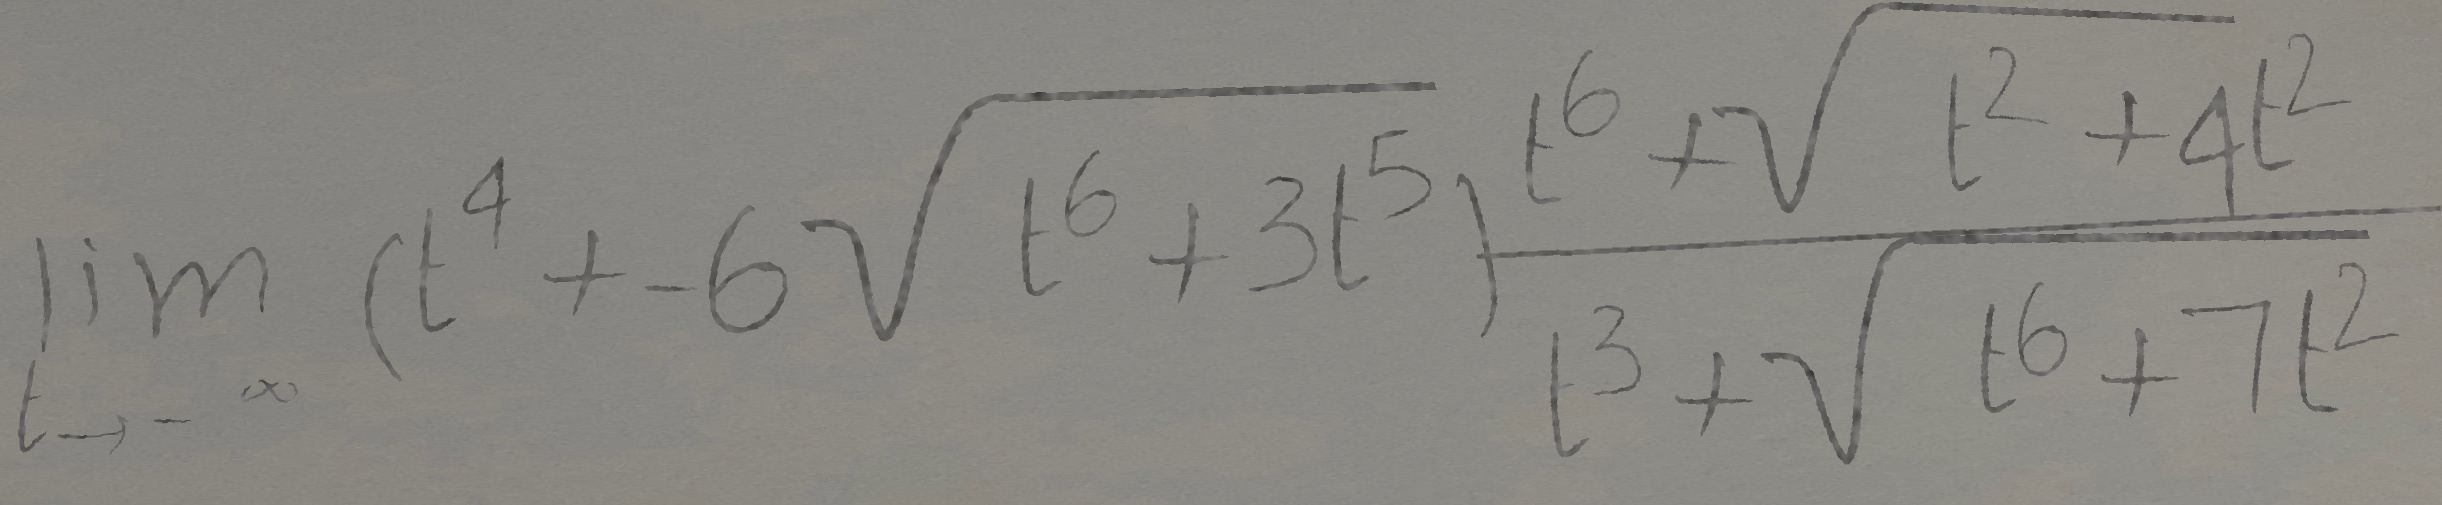 \lim_{t \to -\infty} (t^4 + -6\sqrt{t^6 + 3t^5}) \frac{t^6 + \sqrt{t^2 + 4t^2}}{t^3 + \sqrt{t^6 + 7t^2}}